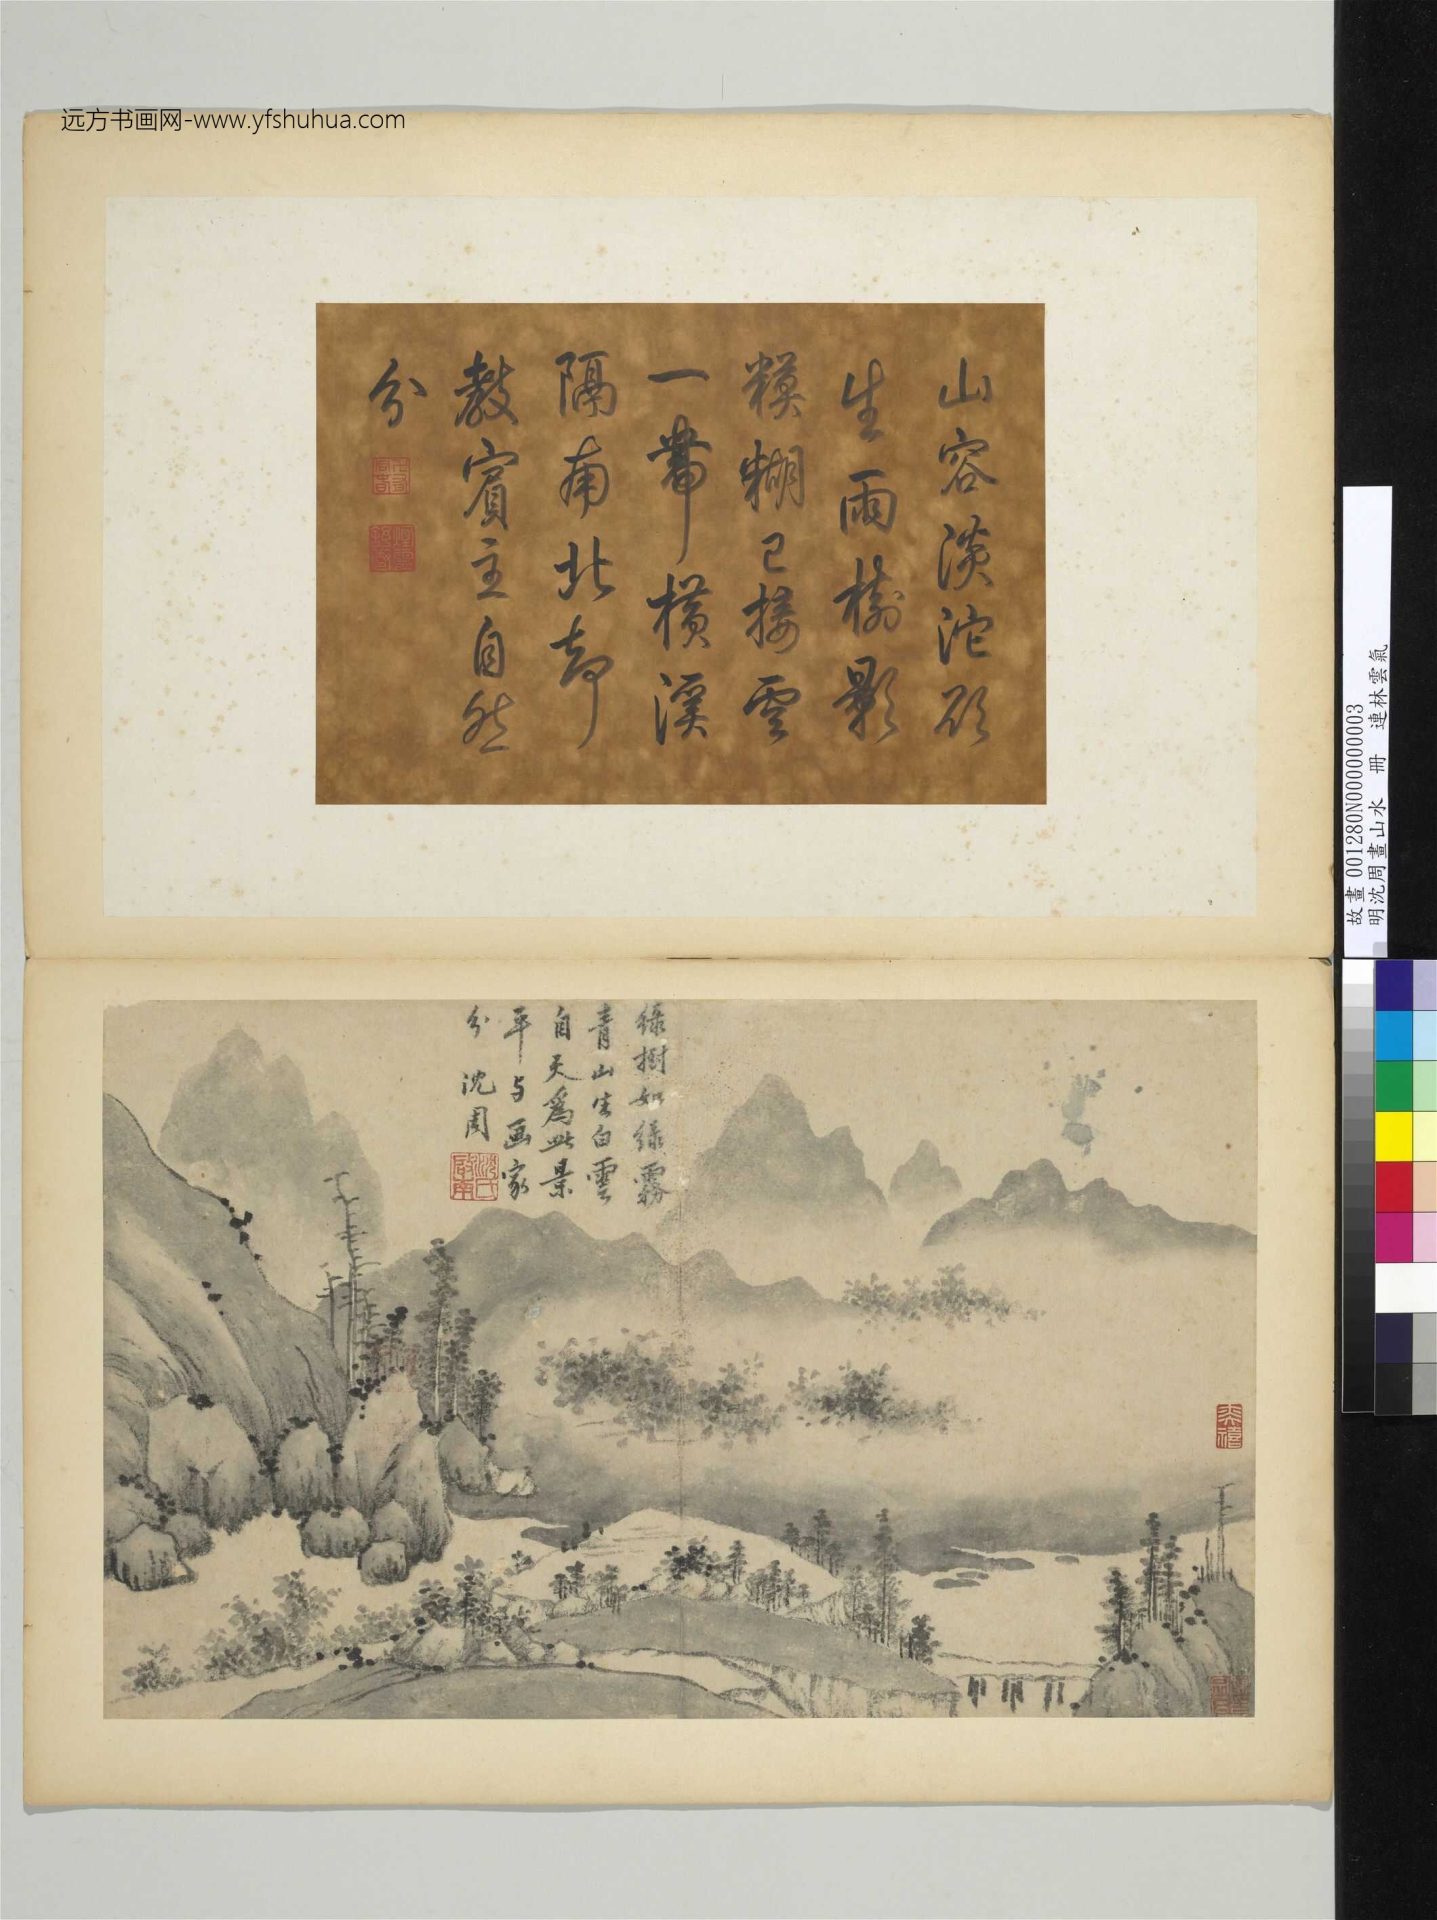 远方书画网-www.yfshuhua.com
山容淡沱欲
生雨樹影
糢糊已接雲
一帶橫溪
隔南北却
教賓主自然
分
綠樹如綠霧
青山生白雲
自天爲此景
平与画家
分 沈周
故畫001280N000000003
明沈周畫山水 冊 連林雲氣